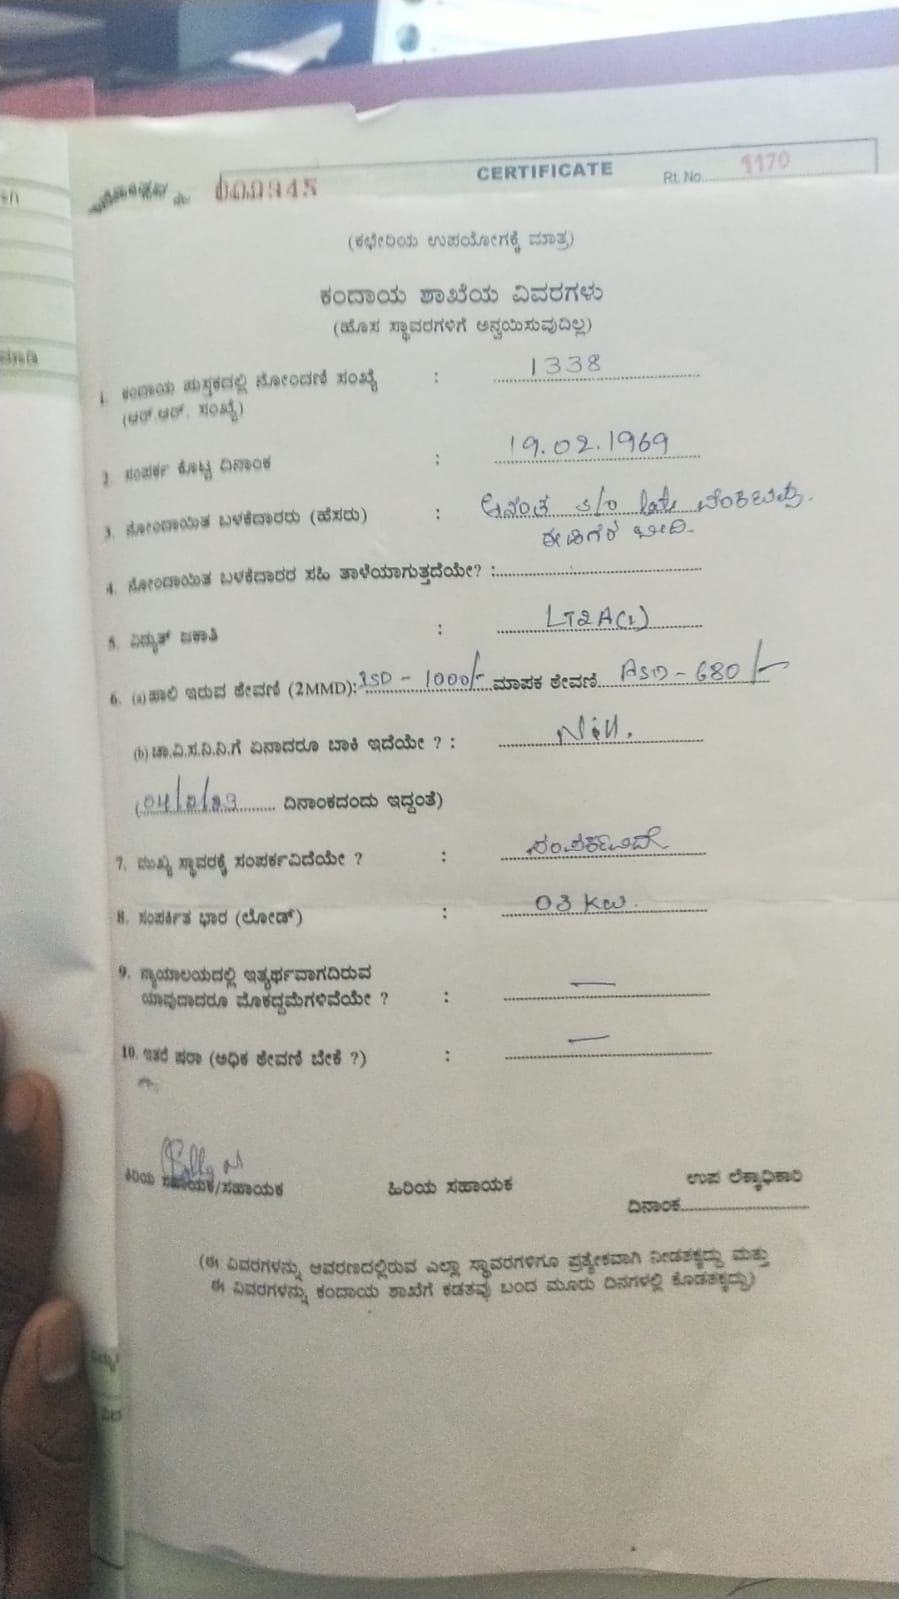 000945
CERTIFICATE
Rt. No. 1170
(ಕಛೇರಿಯ ಉಪಯೋಗಕ್ಕೆ ಮಾತ್ರ)
ಕಂದಾಯ ಶಾಖೆಯ ವಿವರಗಳು
(ಹೊಸ ಸ್ಥಾವರಗಳಿಗೆ ಅನ್ವಯಿಸುವುದಿಲ್ಲ)
1. ಕಂದಾಯ ಪುಸ್ತಕದಲ್ಲಿ ನೋಂದಣಿ ಸಂಖ್ಯೆ : 1338
(ಆರ್.ಆರ್. ಸಂಖ್ಯೆ)
2. ಸಂಪರ್ಕ ಕೊಟ್ಟ ದಿನಾಂಕ : 19.02.1969
3. ನೋಂದಾಯಿತ ಬಳಕೆದಾರರು (ಹೆಸರು) : ಆನಂದ s/o late
ಬೀದಿ.
4. ನೋಂದಾಯಿತ ಬಳಕೆದಾರರ ಸಹಿ ತಾಳೆಯಾಗುತ್ತದೆಯೇ? :
5. ವಿದ್ಯುತ್ ಜಕಾತಿ : LT2A(1)
6. (a) ಹಾಲಿ ಇರುವ ಠೇವಣಿ (2MMD): ISD - 1000/- ಮಾಪಕ ಠೇವಣಿ ASD - 680/-
(b) ಚಾ.ವಿ.ಸ.ನಿ.ನಿ.ಗೆ ಏನಾದರೂ ಬಾಕಿ ಇದೆಯೇ ? : Nill.
(04/2/23 ದಿನಾಂಕದಂದು ಇದ್ದಂತೆ)
7. ಮುಖ್ಯ ಸ್ಥಾವರಕ್ಕೆ ಸಂಪರ್ಕವಿದೆಯೇ ? : ಸಂಪರ್ಕವಿದೆ
8. ಸಂಪರ್ಕಿತ ಭಾರ (ಲೋಡ್) : 03 Kw.
9. ನ್ಯಾಯಾಲಯದಲ್ಲಿ ಇತ್ಯರ್ಥವಾಗದಿರುವ
ಯಾವುದಾದರೂ ಮೊಕದ್ದಮೆಗಳಿವೆಯೇ ? : —
10. ಇತರೆ ಷರಾ (ಅಧಿಕ ಠೇವಣಿ ಬೇಕೆ ?) : —
ಕಿರಿಯ ಸಹಾಯಕ/ಸಹಾಯಕ ಹಿರಿಯ ಸಹಾಯಕ ಉಪ ಲೆಕ್ಕಾಧಿಕಾರಿ
ದಿನಾಂಕ
(ಈ ವಿವರಗಳನ್ನು ಆವರಣದಲ್ಲಿರುವ ಎಲ್ಲಾ ಸ್ಥಾವರಗಳಿಗೂ ಪ್ರತ್ಯೇಕವಾಗಿ ನೀಡತಕ್ಕದ್ದು ಮತ್ತು
ಈ ವಿವರಗಳನ್ನು ಕಂದಾಯ ಶಾಖೆಗೆ ಕಡತವು ಬಂದ ಮೂರು ದಿನಗಳಲ್ಲಿ ಕೊಡತಕ್ಕದ್ದು)